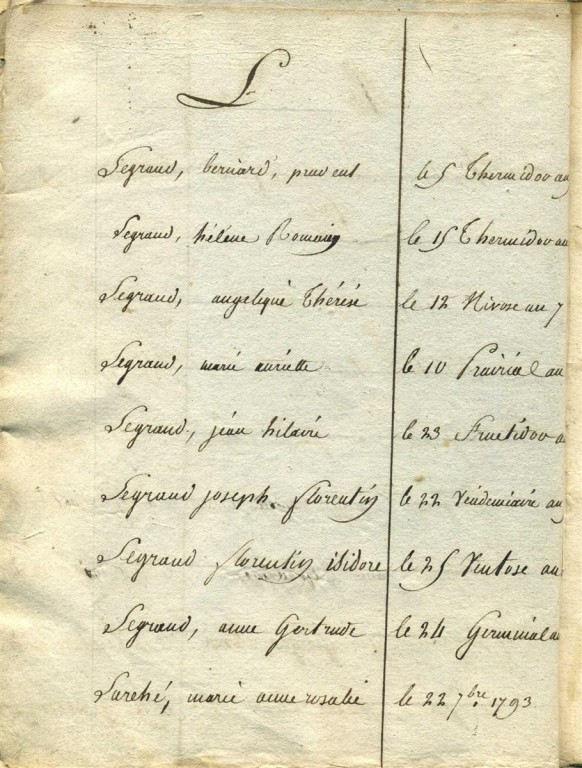 L
Legrand, bernard, prudent le 5 Thermidor an
Legrand, hélène Romain le 15 Thermidor an
Legrand, angeliqùe Thérèse le 12 Nivose an 7
Legrand, marie auriette le 10 Prairial an
Legrand, jéan hilairé le 23 Fructidor a
Legrand joseph florentin le 22 Véndemiairé an
Legrand florentin isidore le 25 Ventose an
Legrand, anne Gertrude le 24 Germinal a
marie anne rosalie le 22 7bre. 1793